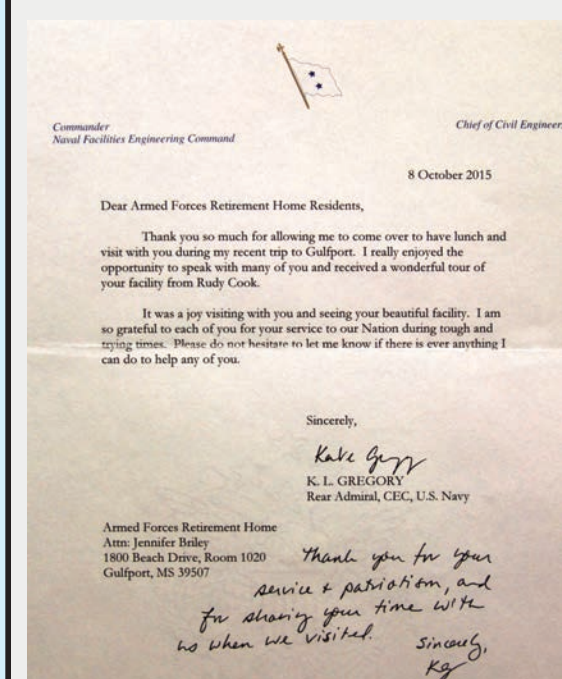 Commander
Naval Facilities Engineering Command
Chief of Civil Engineers
8 October 2015
Dear Armed Forces Retirement Home Residents,
Thank you so much for allowing me to come over to have lunch and
visit with you during my recent trip to Gulfport. I really enjoyed the
opportunity to speak with many of you and received a wonderful tour of
your facility from Rudy Cook.
It was a joy visiting with you and seeing your beautiful facility. I am
so grateful to each of you for your service to our Nation during tough and
trying times. Please do not hesitate to let me know if there is ever anything I
can do to help any of you.
Sincerely,
Kate Gregory
K. L. GREGORY
Rear Admiral, CEC, U.S. Navy
Armed Forces Retirement Home
Attn: Jennifer Briley
1800 Beach Drive, Room 1020
Gulfport, MS 39507
Thank you for your
service & patriotism, and
for sharing your time with
us when we visited.
Sincerely,
Kg